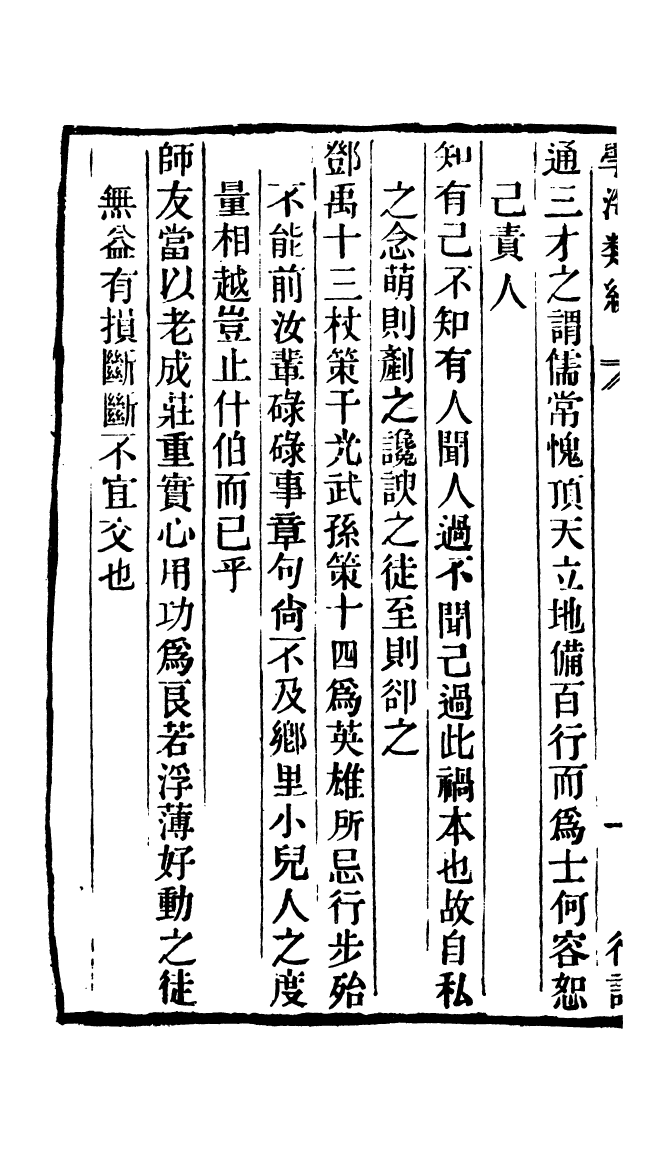 學海類編
一
行
通三才之謂儒常愧頂天立地備百行而爲士何容恕
己責人
知有己不知有人聞人過不聞己過此禍本也故自私
之念萌則剷之讒諛之徒至則卻之
鄧禹十三杖策干光武孫策十四爲英雄所忌行步殆
不能前汝輩碌碌事章句尙不及鄉里小兒人之度
量相越豈止什伯而已乎
師友當以老成莊重實心用功爲良若浮薄好動之徒
無益有損斷斷不宜交也